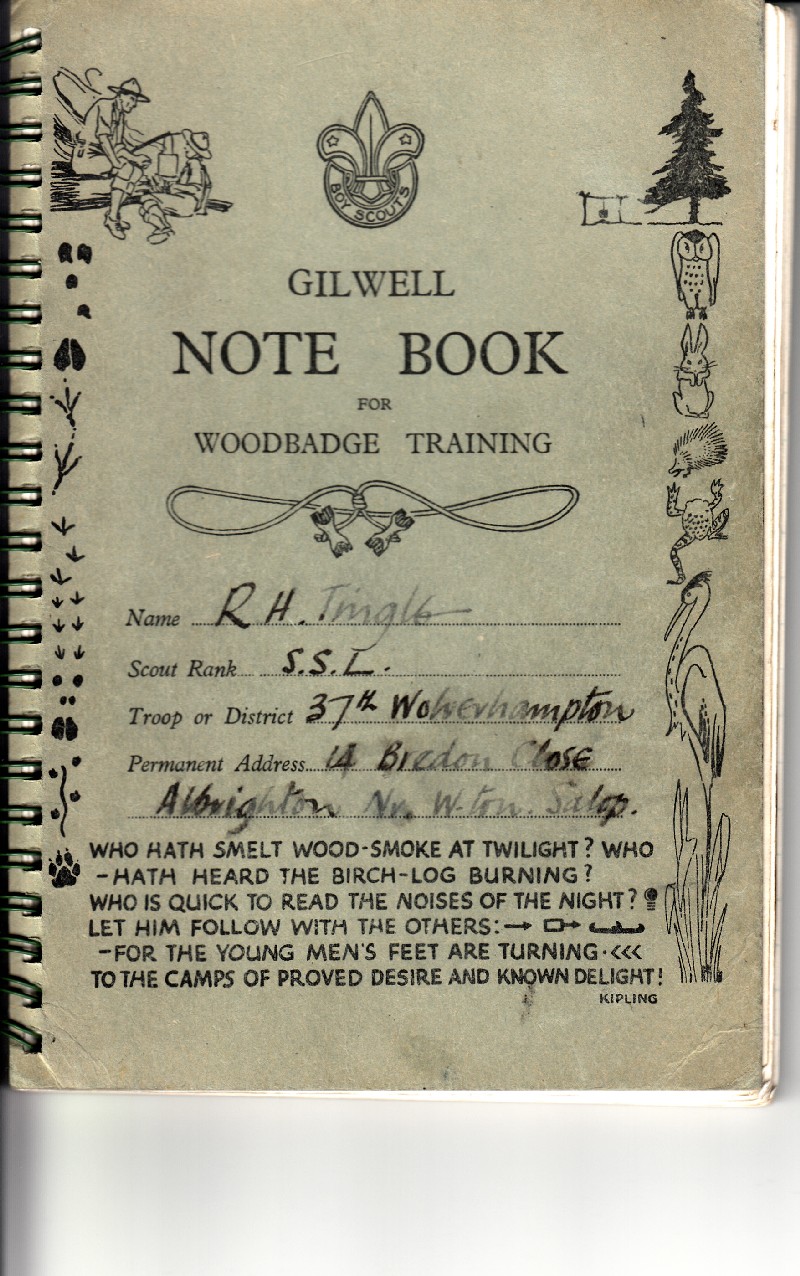 BOY SCOUTS
GILWELL
NOTE BOOK
FOR
WOODBADGE TRAINING
Name R H. Tingle
Scout Rank S.S.L.
Troop or District 37th Wolverhampton
Permanent Address 14 Bredon Close
Albrighton Nr. W-ton. Salop.
WHO HATH SMELT WOOD-SMOKE AT TWILIGHT? WHO
-HATH HEARD THE BIRCH-LOG BURNING?
WHO IS QUICK TO READ THE NOISES OF THE NIGHT?
LET HIM FOLLOW WITH THE OTHERS:
-FOR THE YOUNG MEN'S FEET ARE TURNING.
TO THE CAMPS OF PROVED DESIRE AND KNOWN DELIGHT!
KIPLING